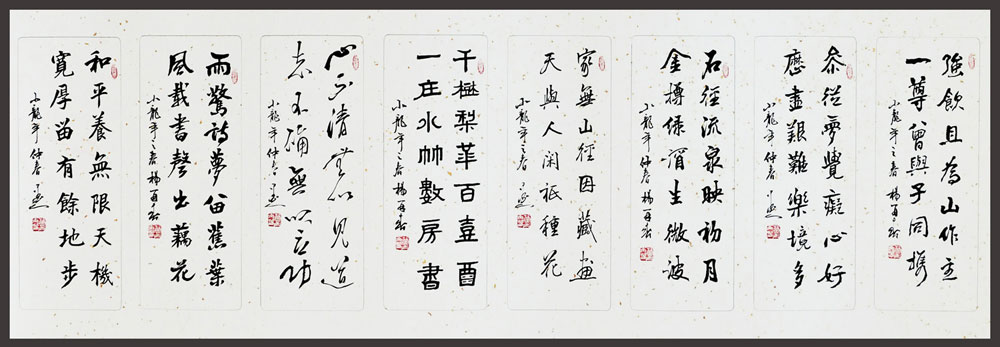 強飲且為山作主
一尊曾與子同携
小龍年之春 楊再春
叅從夢覺癡心好
歷盡艱難樂境多
小龍年仲春
石徑流泉映初月
金樽綠湑生微波
小龍年仲春 楊再春
家無山徑因藏畫
天與人閑祇種花
小龍年之春
千樹梨華百壺酒
一庄水竹數房書
小龍年之春 楊再春
心不清無以見道
志不確無以立功
小龍年仲春
雨驚詩夢留蕉葉
風載書聲出藕花
小龍年之春 楊再春
和平養無限天機
寬厚留有餘地步
小龍年仲春